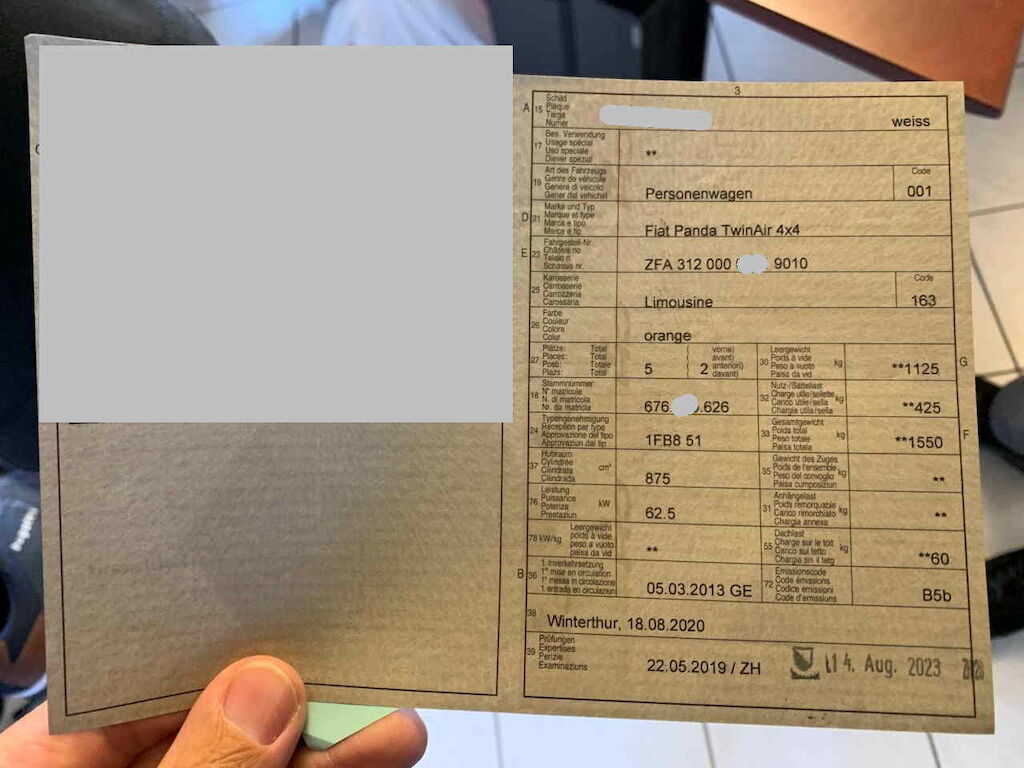 3
A 15 Schild
Plaque
Targa
Numer
weiss
17 Bes. Verwendung
Usage spécial
Uso speciale
Diever spezial
**
19 Art des Fahrzeugs
Genre de véhicule
Genere di veicolo
Gener dal vehichel
Personenwagen
Code
001
D 21 Marke und Typ
Marque et type
Marca e tipo
Marca e tip
Fiat Panda TwinAir 4x4
E 23 Fahrgestell-Nr.
Châssis no
Telaio n.
Schassis nr.
ZFA 312 000 9010
25 Karosserie
Carrosserie
Carrozzeria
Carossaria
Limousine
Code
163
26 Farbe
Couleur
Colore
Color
orange
27 Plätze: Total
Places: Total
Posti: Totale
Plazs: Total
5
vorne)
avant)
anteriori)
davant)
2
30 Leergewicht
Poids à vide
Peso a vuoto
Paisa da vid
kg
**1125
G
18 Stammnummer
N° matricule
N. di matricola
Nr. da matricla
676. .626
32 Nutz-/Sattellast
Charge utile/sellette
Carico utile/sella
Chargia utila/sella
kg
**425
24 Typengenehmigung
Réception par type
Approvazione del tipo
Approvaziun dal tip
1FB8 51
33 Gesamtgewicht
Poids total
Peso totale
Paisa totala
kg
**1550
F
37 Hubraum
Cylindrée
Cilindrata
Cilindrada
cm³
875
35 Gewicht des Zuges
Poids de l'ensemble
Peso del convoglio
Paisa cumposiziun
kg
**
76 Leistung
Puissance
Potenza
Prestaziun
kW
62.5
31 Anhängelast
Poids remorquable
Carico rimorchiato
Chargia annexa
kg
**
78 kW/kg
Leergewicht
poids à vide
peso a vuoto
paisa da vid
**
55 Dachlast
Charge sur le toit
Carico sul tetto
Chargia sin il tetg
kg
**60
B 36 1. Inverkehrsetzung
1re mise en circulation
1a messa in circolazione
1. entrada en circulaziun
05.03.2013 GE
72 Emissionscode
Code émissions
Codice emissioni
Code d'emissiuns
B5b
38
Winterthur, 18.08.2020
39 Prüfungen
Expertises
Perizie
Examinaziuns
22.05.2019 / ZH
14. Aug. 2023